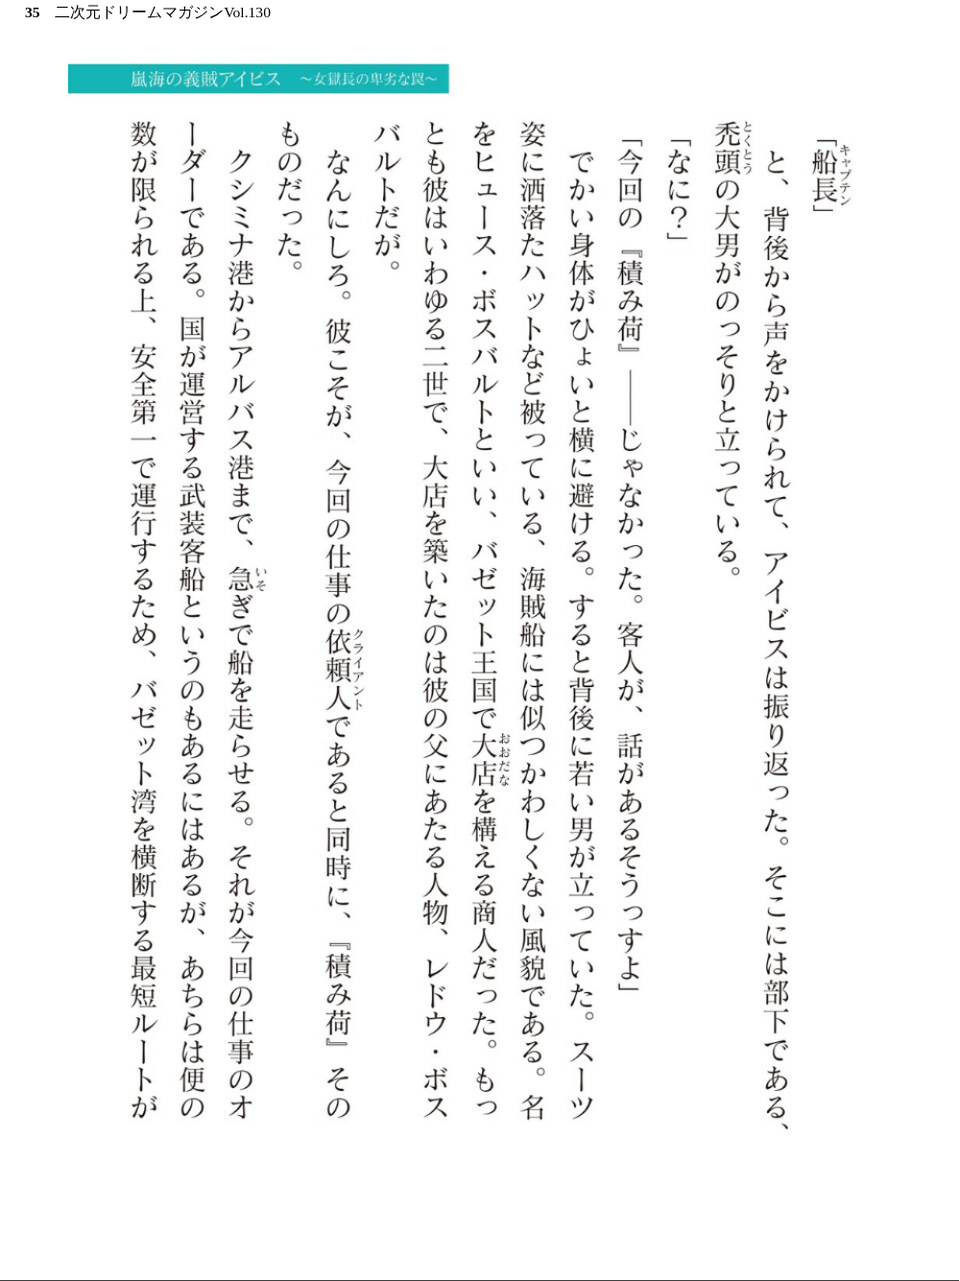 35 二次元ドリームマガジンVol.130
嵐海の義賊アイビス ～女獄長の卑劣な罠～
「船長」
キャプテン
と、背後から声をかけられて、アイビスは振り返った。そこには部下である、
禿頭の大男がのっそりと立っている。
とくとう
「なに？」
「今回の『積み荷』――じゃなかった。客人が、話があるそうっすよ」
でかい身体がひょいと横に避ける。すると背後に若い男が立っていた。スーツ
姿に洒落たハットなど被っている、海賊船には似つかわしくない風貌である。名
をヒュース・ボスバルトといい、バゼット王国で大店を構える商人だった。もっ
おおだな
とも彼はいわゆる二世で、大店を築いたのは彼の父にあたる人物、レドウ・ボス
バルトだが。
なんにしろ。彼こそが、今回の仕事の依頼人であると同時に、『積み荷』その
クライアント
ものだった。
クシミナ港からアルバス港まで、急ぎで船を走らせる。それが今回の仕事のオ
いそ
ーダーである。国が運営する武装客船というのもあるにはあるが、あちらは便の
数が限られる上、安全第一で運行するため、バゼット湾を横断する最短ルートが